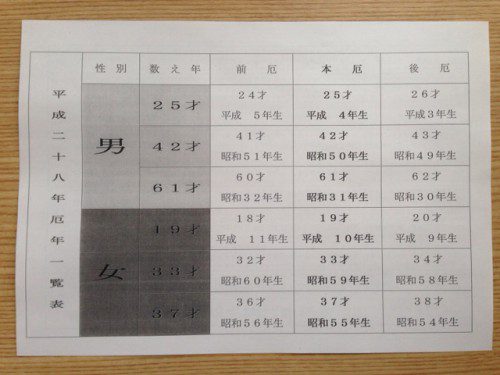 平成二十八年厄年一覧表
性別 数え年 前厄 本厄 後厄
男
25才
24才 25才 26才
平成 5年生 平成 4年生 平成3年生
42才
41才 42才 43才
昭和51年生 昭和50年生 昭和49年生
61才
60才 61才 62才
昭和32年生 昭和31年生 昭和30年生
女
19才
18才 19才 20才
平成 11年生 平成 10年生 平成 9年生
33才
32才 33才 34才
昭和60年生 昭和59年生 昭和58年生
37才
36才 37才 38才
昭和56年生 昭和55年生 昭和54年生